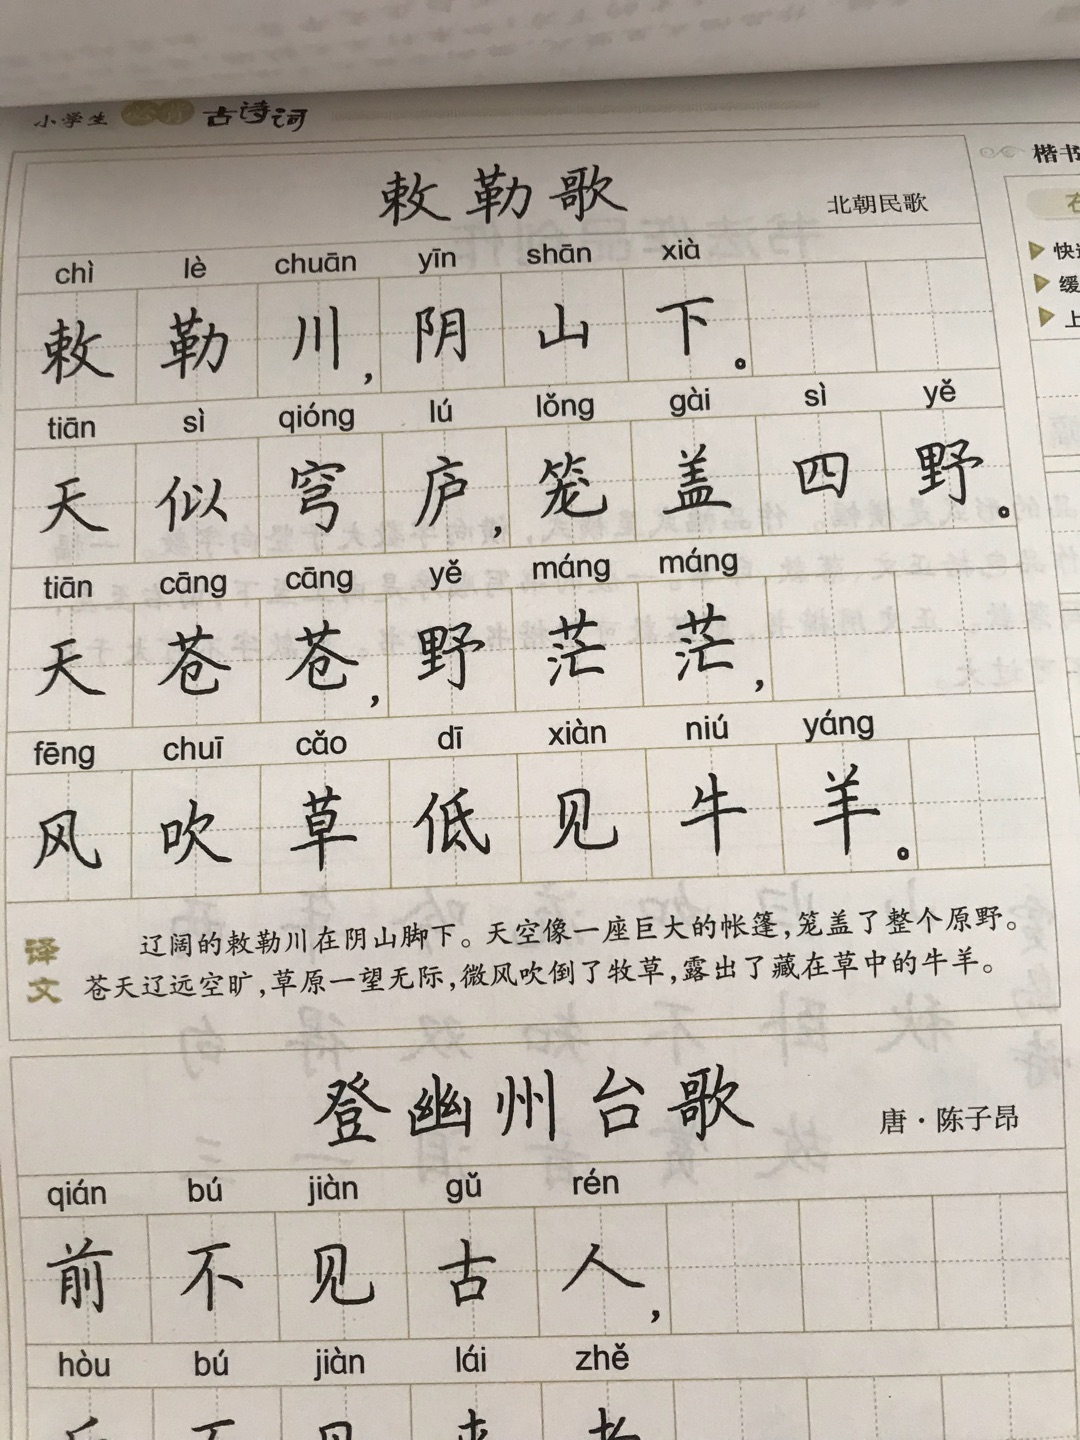 小学生必背古诗词
敕勒歌
北朝民歌
chì lè chuān yīn shān xià
敕勒川,阴山下。
tiān sì qióng lú lǒng gài sì yě
天似穹庐,笼盖四野。
tiān cāng cāng yě máng máng
天苍苍,野茫茫,
fēng chuī cǎo dī xiàn niú yáng
风吹草低见牛羊。
译文
辽阔的敕勒川在阴山脚下。天空像一座巨大的帐篷,笼盖了整个原野。
苍天辽远空旷,草原一望无际,微风吹倒了牧草,露出了藏在草中的牛羊。
登幽州台歌
唐·陈子昂
qián bú jiàn gǔ rén
前不见古人,
hòu bú jiàn lái zhě
楷书